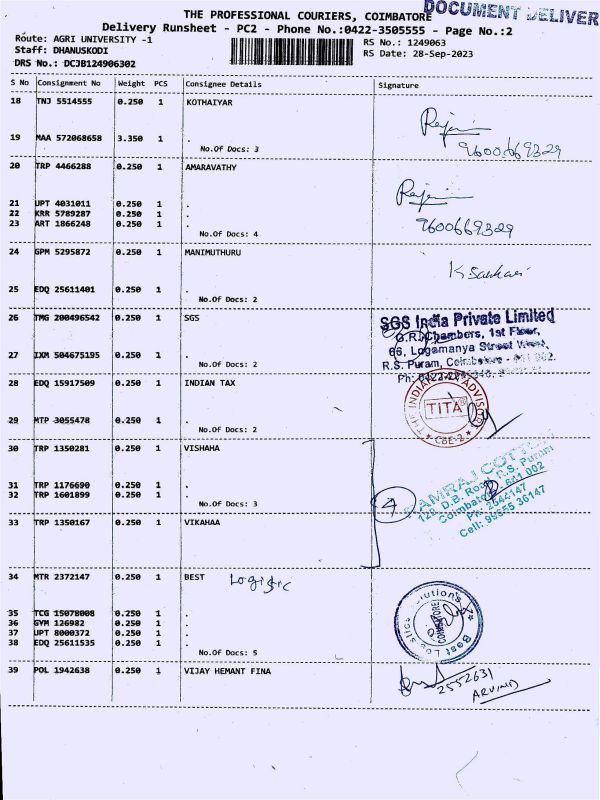 DOCUMENT DELIVER
THE PROFESSIONAL COURIERS, COIMBATORE
Delivery Runsheet - PC2 - Phone No.:0422-3505555 - Page No.:2
Route: AGRI UNIVERSITY -1
RS No.: 1249063
Staff: DHANUSKODI
RS Date: 28-Sep-2023
DRS No.: DCJB124906302
S No Consignment No Weight PCS Consignee Details Signature
18 TNJ 5514555 0.250 1 KOTHAIYAR
19 MAA 572068658 3.350 1 .
No.Of Docs: 3
9600669329
20 TRP 4466288 0.250 1 AMARAVATHY
21 UPT 4031011 0.250 1 .
22 KRR 5789287 0.250 1 .
23 ART 1866248 0.250 1 .
No.Of Docs: 4
9600669329
24 GPM 5295872 0.250 1 MANIMUTHURU
K Sankari
25 EDQ 25611401 0.250 1 .
No.Of Docs: 2
26 TMG 200496542 0.250 1 SGS
SGS India Private Limited
G.R. Chambers, 1st Floor,
66, Logamanya Street West,
R.S. Puram, Coimbatore
27 IXM 504675195 0.250 1 .
No.Of Docs: 2
28 EDQ 15917509 0.250 1 INDIAN TAX
THE INDIAN TAX ADVISOR
TITA
CBE-2
29 MTP 3055478 0.250 1 .
No.Of Docs: 2
30 TRP 1350281 0.250 1 VISHAHA
31 TRP 1176690 0.250 1 .
32 TRP 1601899 0.250 1 .
No.Of Docs: 3
4
RAMRAJ COTTON
D.B. Road, R.S. Puram
Coimbatore - 641 002
Ph: 2544147
Cell: 99655 36147
33 TRP 1350167 0.250 1 VIKAHAA
34 MTR 2372147 0.250 1 BEST Logistic
35 TCG 15078008 0.250 1 .
36 GYM 126982 0.250 1 .
37 UPT 8000372 0.250 1 .
38 EDQ 25611535 0.250 1 .
No.Of Docs: 5
Best Logistics Solutions
COIMBATORE
39 POL 1942638 0.250 1 VIJAY HEMANT FINA
2552631
ARVIND